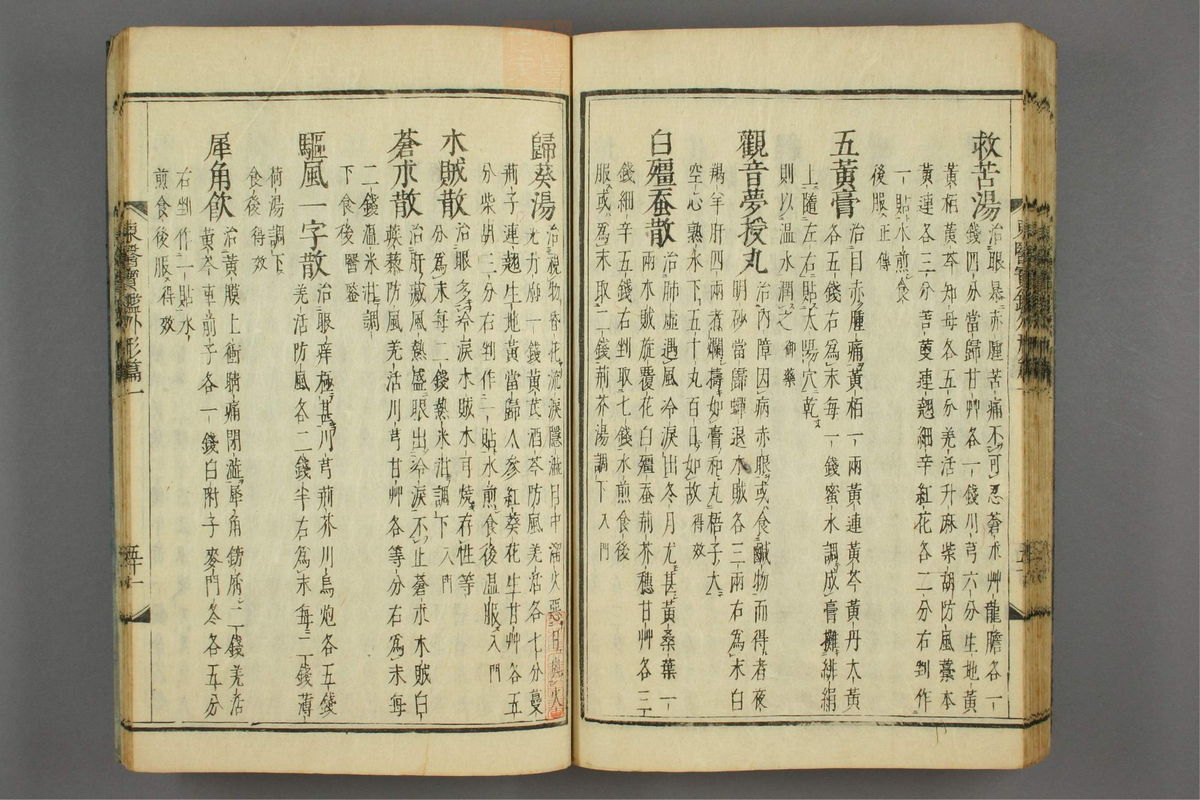 救苦湯 治眼暴赤腫苦痛不可忍蒼朮艸龍膽各一
錢四分當歸甘艸各一錢川芎六分生地黃
黃栢黃芩知母各五分羌活升麻柴胡防風藁本
黃連各三分菩蔓連翹細辛紅花各二分右剉作
一貼水煎食
後服正傳
五黃膏 治目赤腫痛黃栢一兩黃連黃芩黃丹大黃
各五錢右為末每一錢蜜水調成膏攤緋絹
上隨左右貼太陽穴乾
則以温水潤之御藥
觀音夢授丸 治內障因病赤眼或食鹹物而得者夜
明砂當歸蟬退木賊各三兩右為末白
羯羊肝四兩煮爛擣如膏和丸梧子大
空心熟水下五十丸百日如故得效
白殭蚕散 治肺虛遇風冷淚出冬月尤甚黃桑葉一
兩木賊旋覆花白殭蚕荊芥穗甘艸各三
錢細辛五錢右剉取七錢水煎食後
服或為末取二錢荊芥湯調下入門
歸葵湯 治視物昏花流淚隱澁目中溜火惡日與火
荊子連翹生地黃當歸人參紅葵花生甘艸各五
分柴胡二分右剉作一貼水煎食後温服入門
木賊散 治眼多冷淚木賊木耳燒存性等
分為末每二錢熱米泔調下入門
蒼朮散 治肝藏風熱盛眼出冷淚不止蒼朮木賊白
蒺藜防風羌活川芎甘艸各等分右為末每
二錢温米泔調
下食後醫鑒
驅風一字散 治眼痒極甚川芎荊芥川烏炮各五錢
羌活防風各二錢半右為末每二錢薄
荷湯調下
食後得效
犀角飮 治黃膜上衝睛痛閉澁犀角鎊屑二錢羌活
黃芩車前子各一錢白附子麥門冬各五分
右剉作一貼水
煎食後服得效
東醫寶鑑外形篇一
五十一